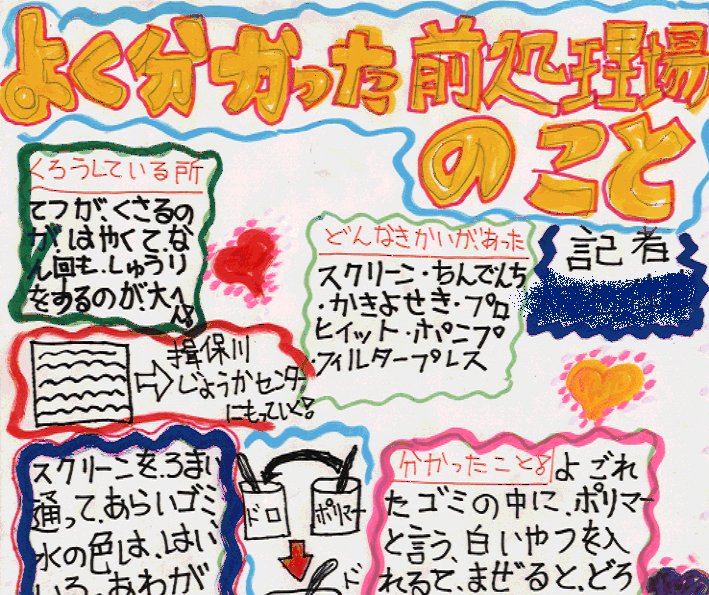 よく分かった前処理場
のこと
くろうしている所
てつが、くさるの
が、はやくて、な
ん回も、しゅうり
をするのが、大へん
どんなきかいがあった
スクリーン・ちんでんち
・かきよせき・ブロ
ヒィット・ポンプ
・フィルタープレス
記者
揖保川
じょうかセンター
にもっていく!
スクリーンを、3まい
通って、あらいゴミ
水の色は、はい
いろ、あわが
ドロ
ポリマー
ド
分かったこと よごれ
たゴミの中に、ポリマー
と言う、白いやつを入
れると、まぜると、どろ